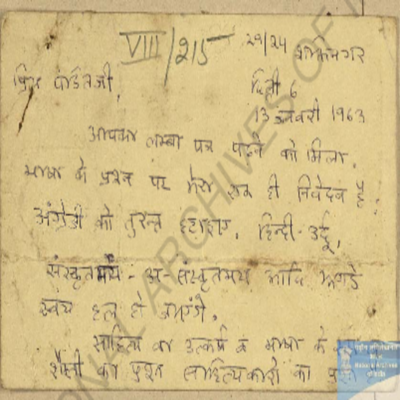 VIII/215
29/24 शक्तिनगर
प्रिय पंडितजी,
दिल्ली 6
13 जनवरी 1963
आपका लम्बा पत्र पढ़ने को मिला.
भाषा के प्रश्न पर मेरा एक ही निवेदन है:
अंग्रेज़ी को तुरन्त हटाइए. हिन्दी-उर्दू,
संस्कृतमय - अ-संस्कृतमय आदि झगड़े
स्वयं हल हो जाएंगे.
साहित्य का उत्कर्ष व भाषा के
शैली का प्रश्न साहित्यकारों का
NATIONAL ARCHIVES OF